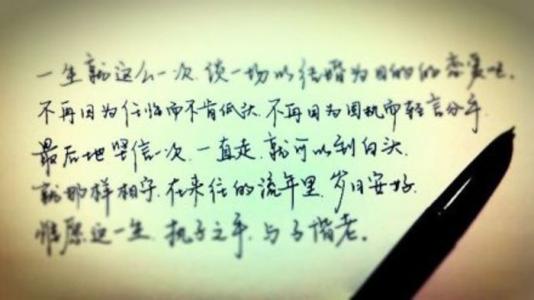 一生就这么一次.谈一场以结婚为目的的恋爱吧.
不再因为任性而不肯低头.不再因为固执而轻言分手.
最后地坚信一次.一直走.就可以到白头.
就那样相守.在来往的流年里.岁月安好.
惟愿这一生.执子之手.与子偕老。